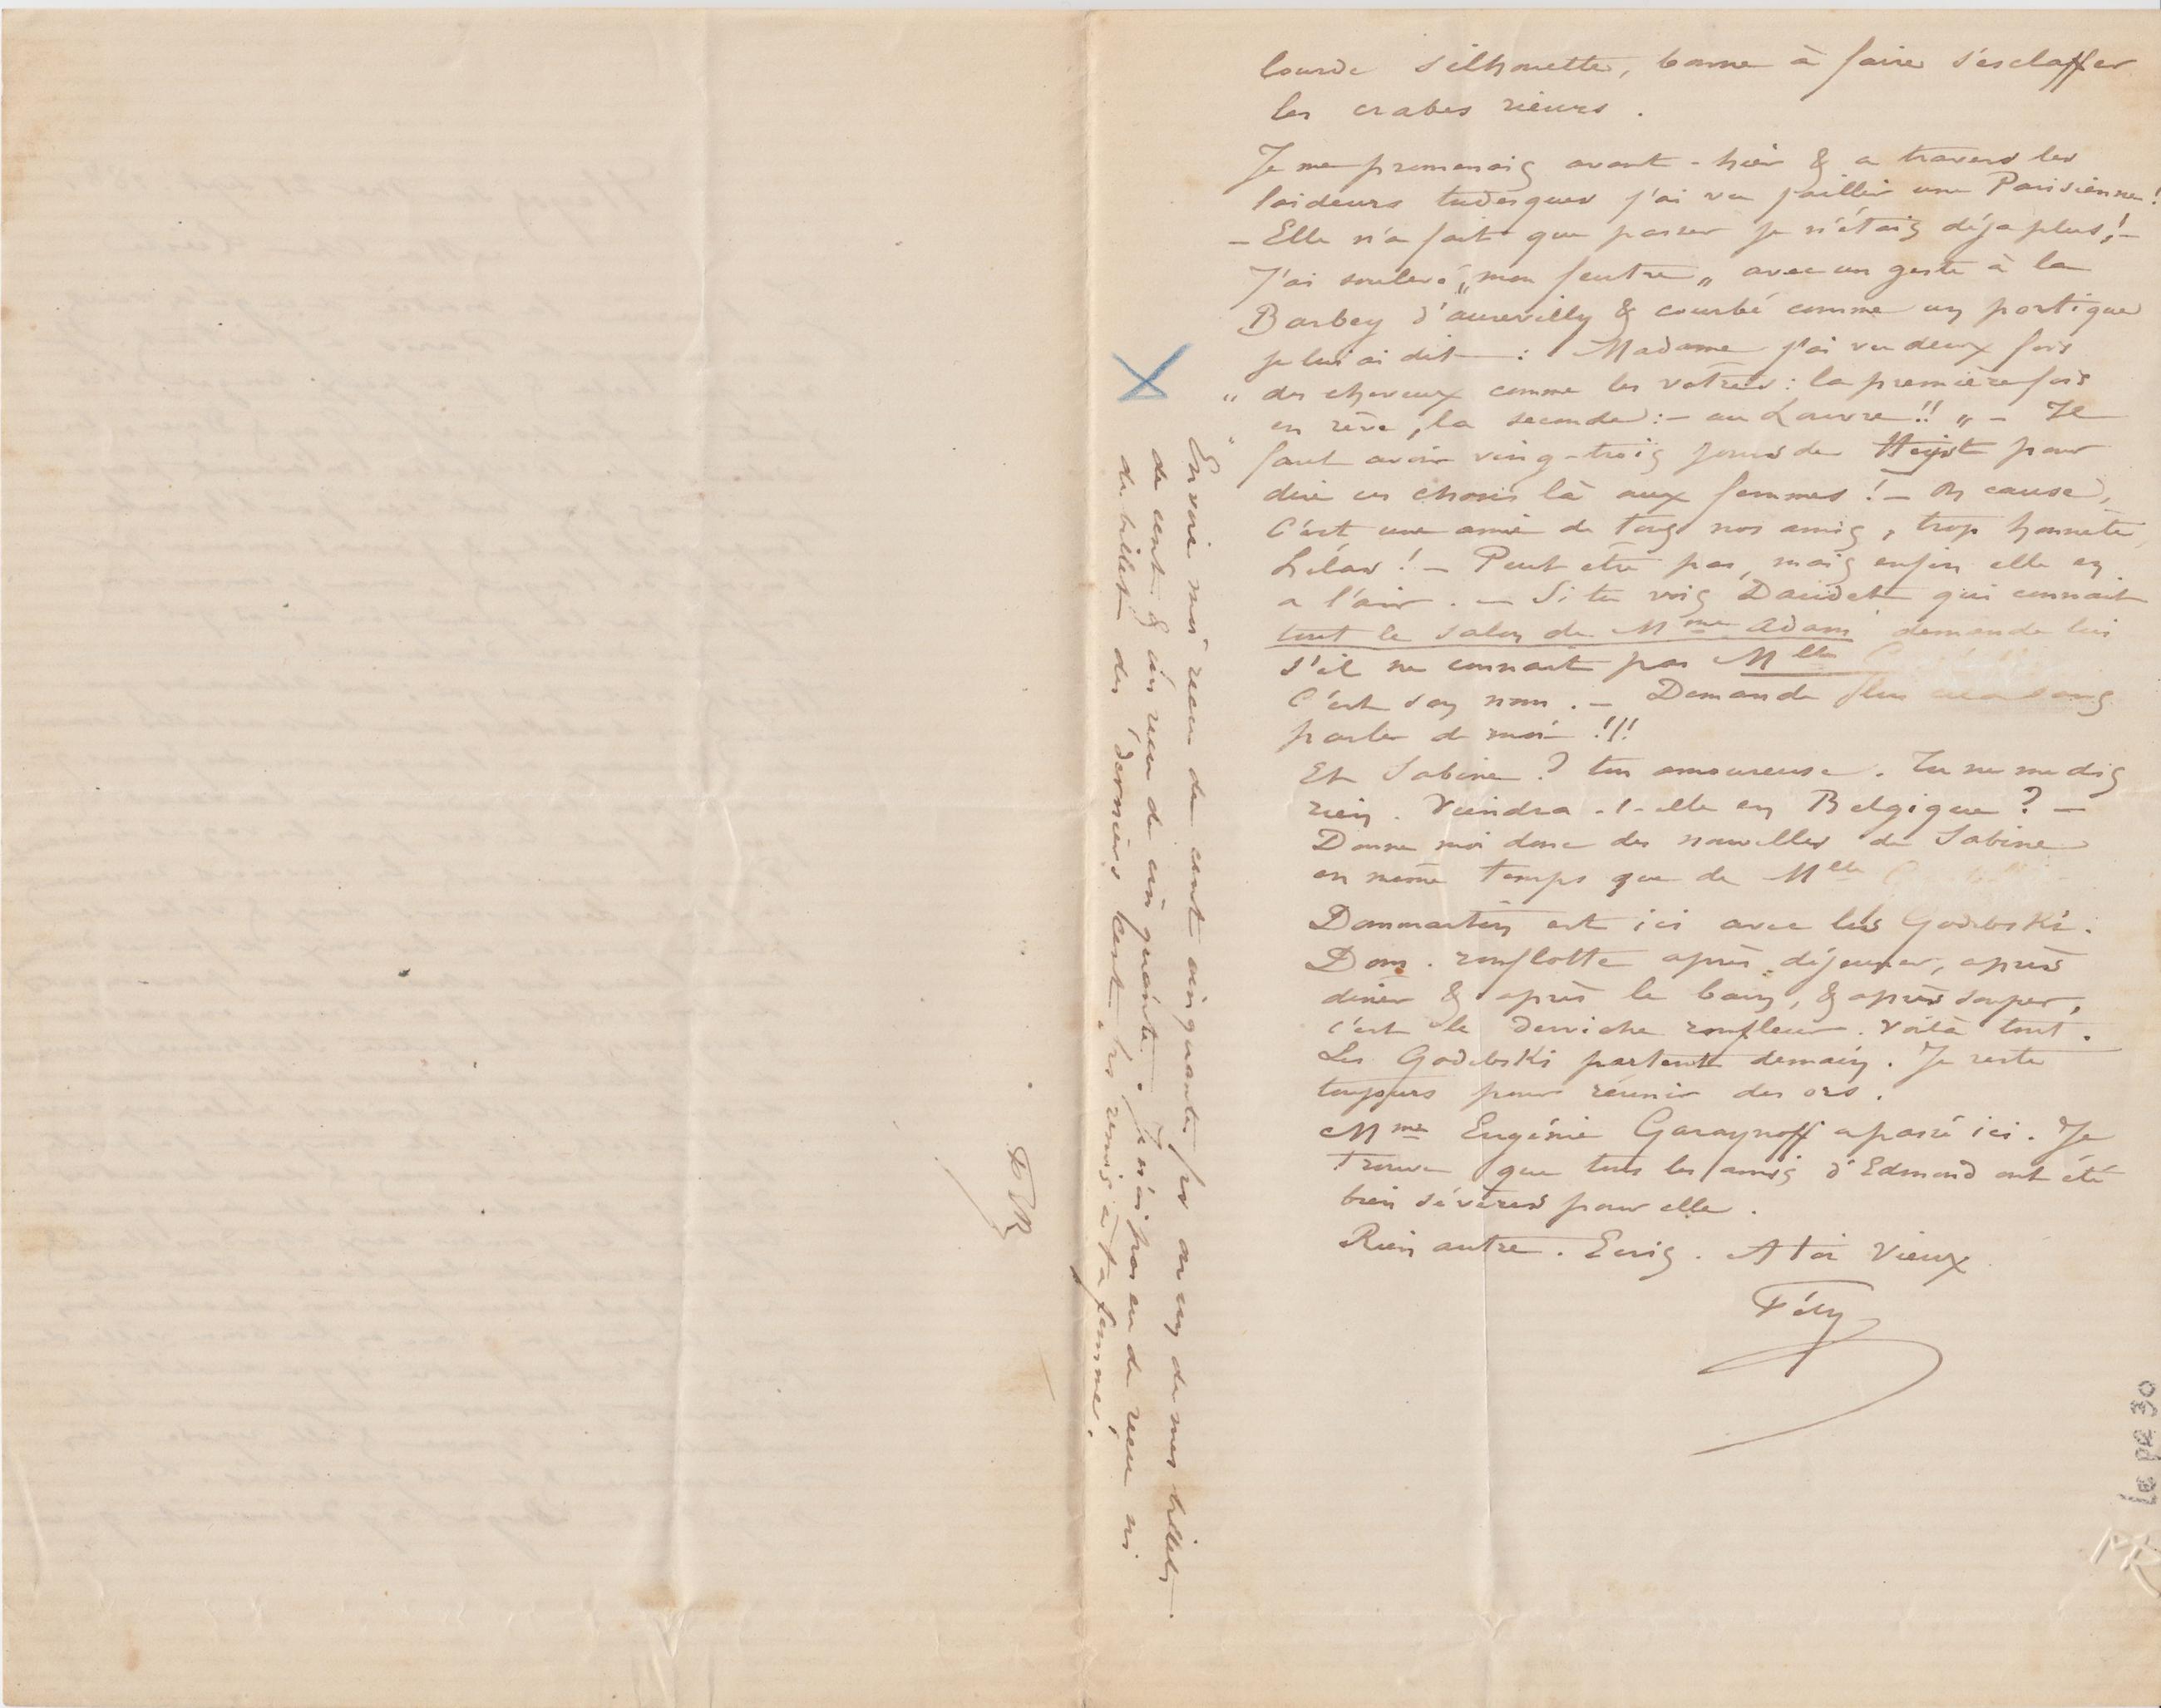 lourde silhouette, bonne à faire s'esclaffer
les crabes rieurs.
Je me promenais avant-hier & a travers les
laideurs tudesques j'ai vu jaillir une Parisienne!
— Elle n'a fait que passer je n'étais déja plus! —
J'ai soulevé „mon feutre„ avec un geste à la
Barbey d'aurevilly & courbé comme un portique
je lui ai dit : Madame j'ai vu deux fois
„ des cheveux comme les votres : la première fois
en rêve, la seconde : — au Louvre !! „ — Il
faut avoir ving-trois jours de Heyst pour
dire ces choses là aux femmes ! — On cause,
C'est une amie de tous nos amis, trop honnête,
hélas ! — Peut etre pas, mais enfin elle en
a l'air. — Si tu vois Daudet qui connait
tout le salon de Mme Adam demande lui
s'il ne connait pas Mlle
C'est son nom. — Demande lui cela sans
parler de moi !!!
Et Sabine ? ton amoureuse. Tu ne me dis
rien. Viendra-t-elle en Belgique ? —
Donne moi donc des nouvelles de Sabine
en même temps que de Mlle
Dommartin est ici avec les Godebski.
Dom. ronflotte après déjeuner, après
diner & après le bain, & après souper,
c'est le derviche ronfleur. Voilà tout.
Les Godebski partent demain. Je reste
toujours pour réunir des ors.
Mme Eugénie Garaynoff a passé ici. Je
trouve que tous les amis d'Edmond ont été
bien sévères pour elle.
Rien autre. Ecris. A toi Vieux
Fély
Envoie moi reçu de cent cinquante frs ou un de mes billets
de cent & un reçu de cinquante. Je n'ai pas eu de reçu ni
de billet des derniers cent frs remis à ta femme.
FR